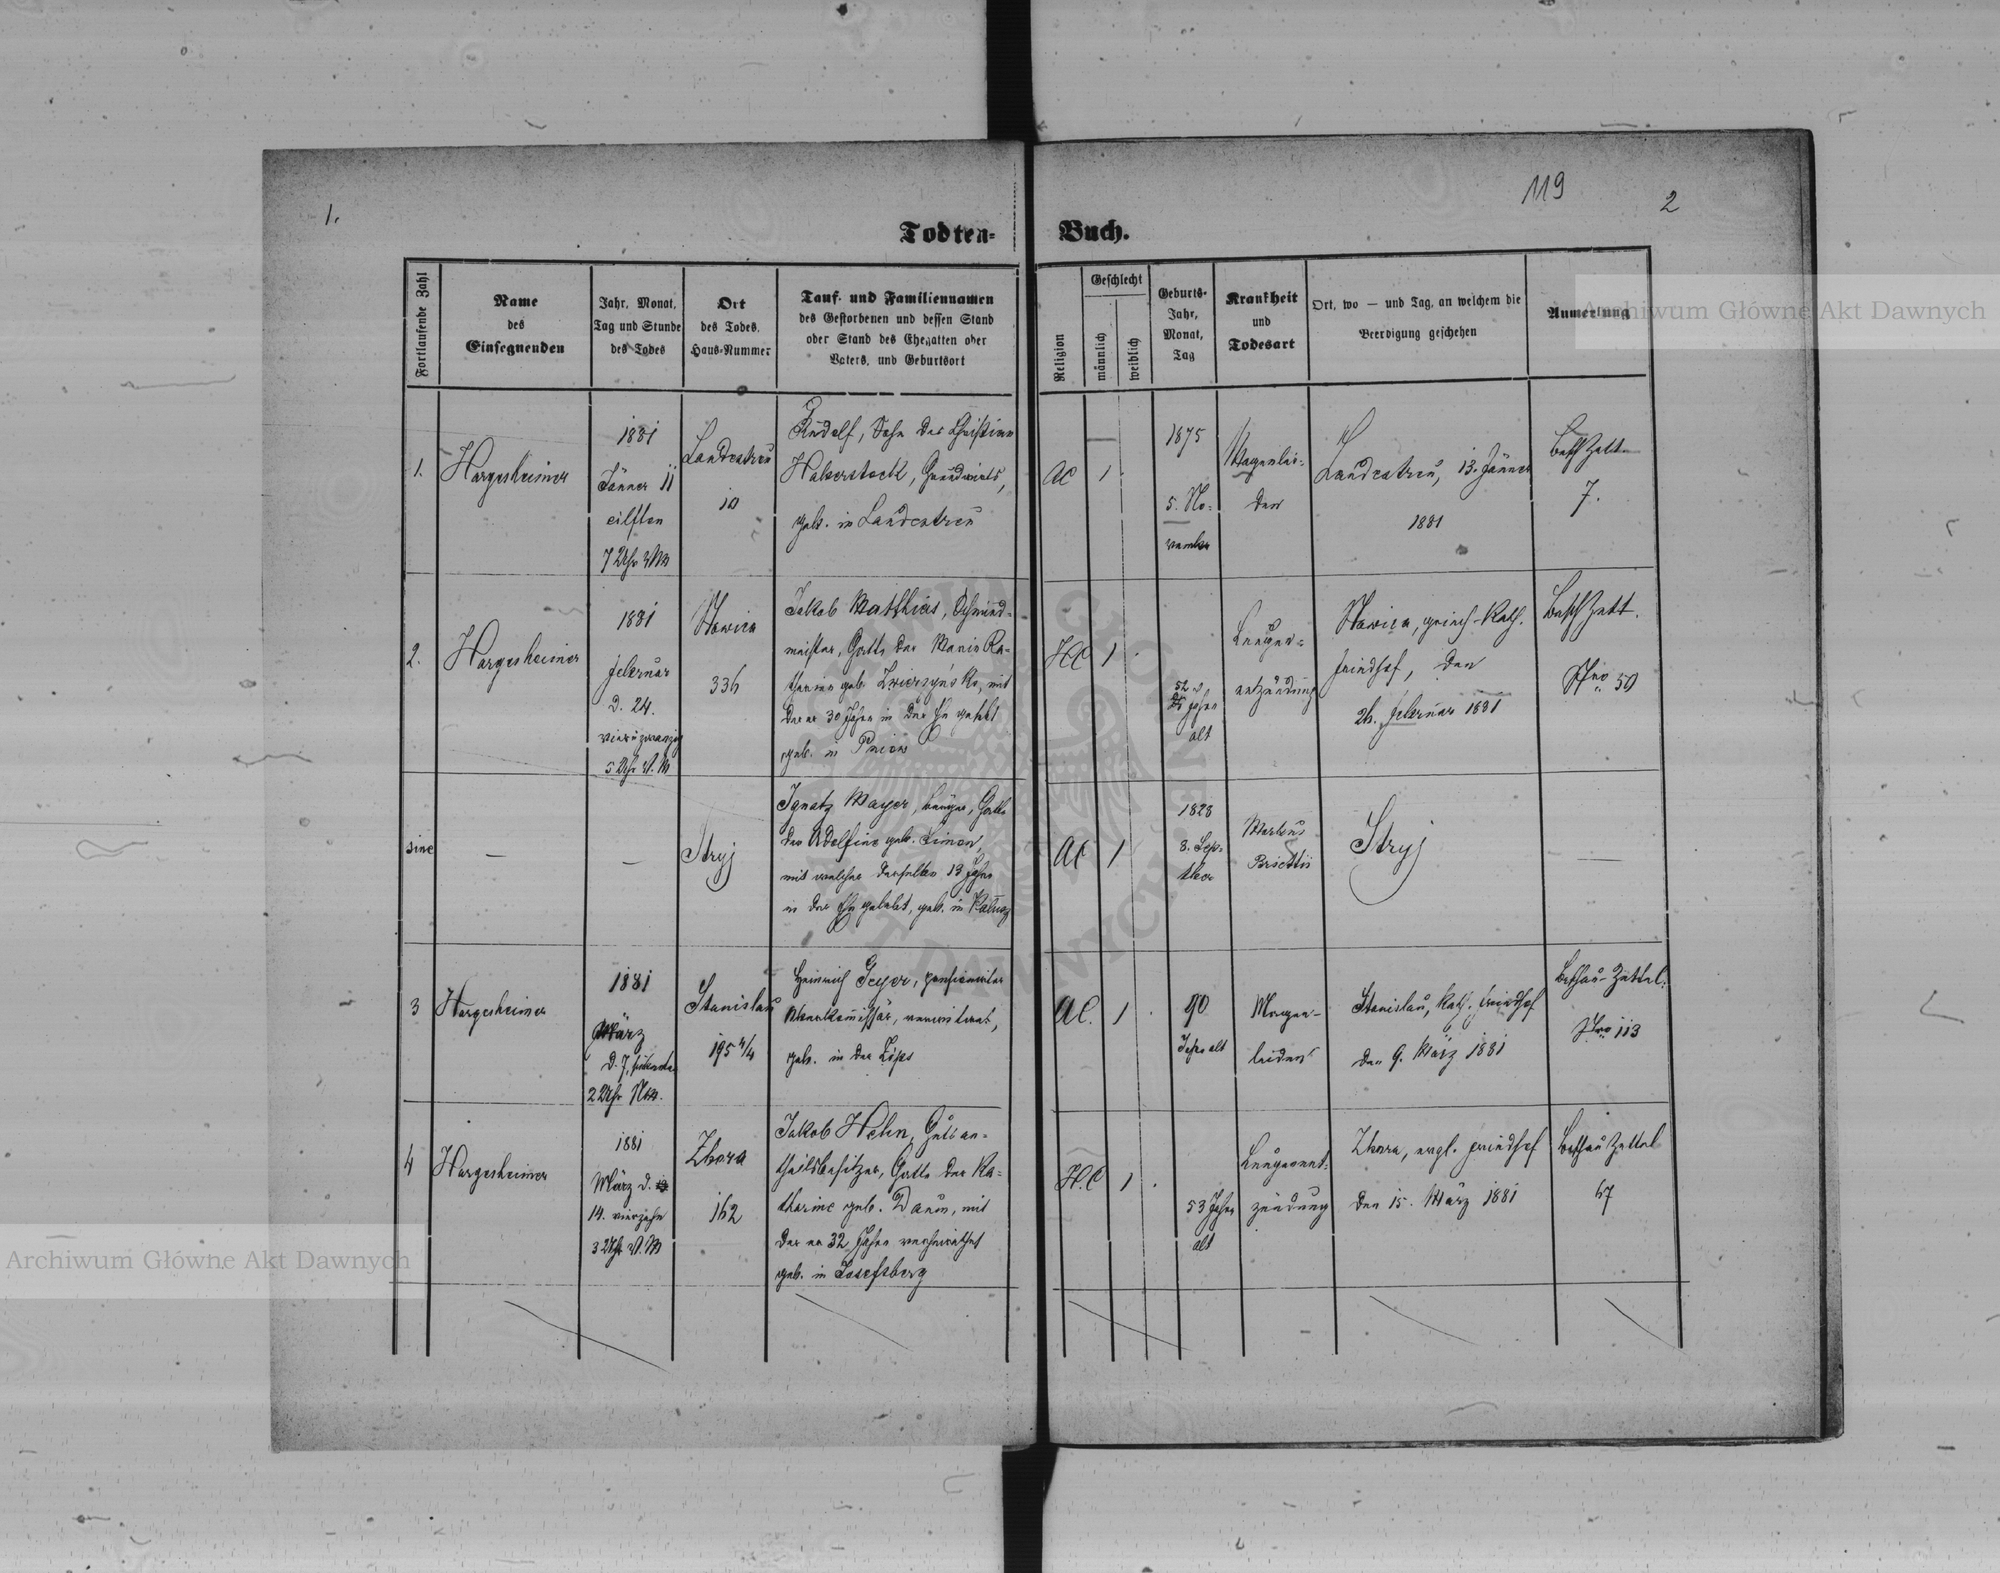 1.
119
2
Todten-
Buch.
Fortlaufende Zahl
Name
des
Einsegnenden
Jahr, Monat,
Tag und Stunde
des Todes
Ort
des Todes,
Haus-Nummer
Tauf- und Familiennamen
des Gestorbenen und dessen Stand
oder Stand des Ehegatten oder
Vaters, und Geburtsort
Religion
Geschlecht
männlich
weiblich
Geburts-
Jahr,
Monat,
Tag
Krankheit
und
Todesart
Ort, wo — und Tag, an welchem die
Beerdigung geschehen
Anmerkung
1.
Hargesheimer
1881
Jänner 11
eilften
7 Uhr VM
Landestreu
10
Rudolf, Sohn des Christian
Haberstock, Grundwirts,
geb. in Landestreu
AC
1
1875
5. No-
vember
Magenlei-
den
Landestreu, 13. Jänner
1881
Besch Zett
7.
2.
Hargesheimer
1881
Februar
d. 24.
vierundzwanzig
5 Uhr V.M
Nowica
336
Jakob Matthias, Schmied-
meister, Gatte der Maria Ka-
tharina geb. mit
der er 30 Jahre in der Ehe gelebt
geb. in
HC
1
52
Jahre
alt
Lungen-
entzündung
Nowica, griech-kath.
Friedhof, den
26. Februar 1881
Besch Zett.
Nro 50
sine
—
—
Stryj
Ignatz Mayer, Gatte
der Adolfine geb. Simon,
mit welcher derselbe 13 Jahre
in der Ehe gelebt, geb. in Kalusz
AC
1
1828
8. Sep-
tber
Morbus
Brightii
Stryj
—
3
Hargesheimer
1881
März
d. 7, siebenten
2 Uhr Nm.
Stanislau
195 4/4
Heinrich Geyer, pensionirter
verwitwet,
geb. in der Zips
AC.
1
90
Jahre alt
Magen-
leiden
Stanislau, kath. Friedhof
den 9. März 1881
Beschau-Zettel.
Nro 113
4
Hargesheimer
1881
März d.
14. vierzehn
3 Uhr V.M
Zbora
162
Jakob Hehn, Gutsan-
theilsbesitzer, Gatte der Ka-
tharine geb. Daum, mit
der er 32 Jahre verheirathet
geb. in Josefsberg
H.C
1
53 Jahre
alt
Lungenent-
zündung
Zbora, evgl. Friedhof
den 15. März 1881
Beschau Zettel
67
Archiwum Główne Akt Dawnych
Archiwum Główne Akt Dawnych